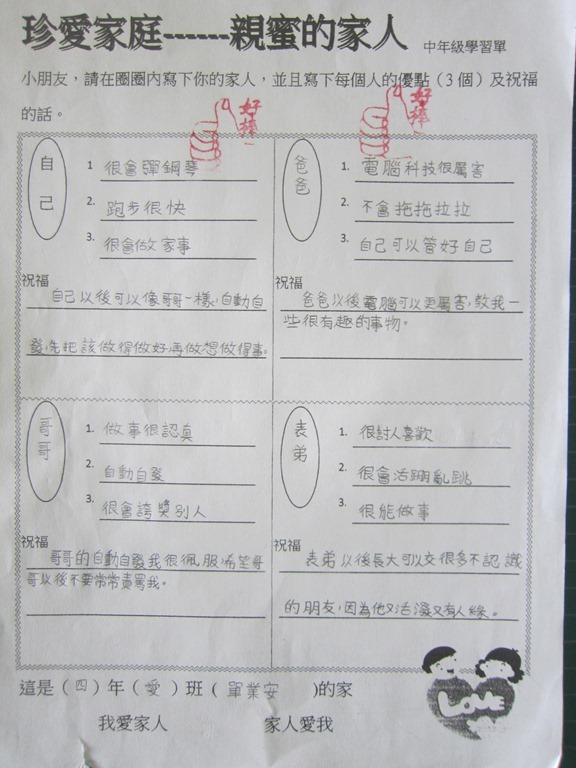 珍愛家庭------親蜜的家人 中年級學習單
小朋友，請在圈圈內寫下你的家人，並且寫下每個人的優點（3 個）及祝福
的話。
好棒
好棒
自己
1. 很會彈鋼琴
2. 跑步很快
3. 很會做家事
祝福
自己以後可以像哥哥一樣，自動自
發，先把該做得做好再做想做得事。
爸爸
1. 電腦科技很厲害
2. 不會拖拖拉拉
3. 自己可以管好自己
祝福
爸爸以後電腦可以更厲害，教我一
些很有趣的事物。
哥哥
1. 做事很認真
2. 自動自發
3. 很會誇獎別人
祝福
哥哥的自動自發我很佩服，希望哥
哥以後不要常常責罵我。
表弟
1. 很討人喜歡
2. 很會活蹦亂跳
3. 很能做事
祝福
表弟以後長大可以交很多不認識
的朋友，因為他又活潑又有人緣。
這是（四）年（愛）班（單業安）的家
我愛家人 家人愛我
LOVE